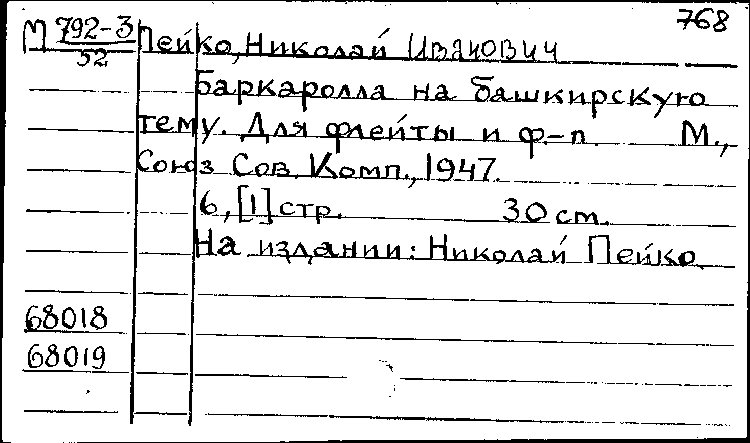 768
М 792-3 Пейко, Николай Иванович
52
Баркаролла на башкирскую
тему. Для флейты и ф.-п. М.,
Союз Сов. Комп., 1947.
6, [1] стр. 30 cm.
На издании: Николай Пейко
68018
68019